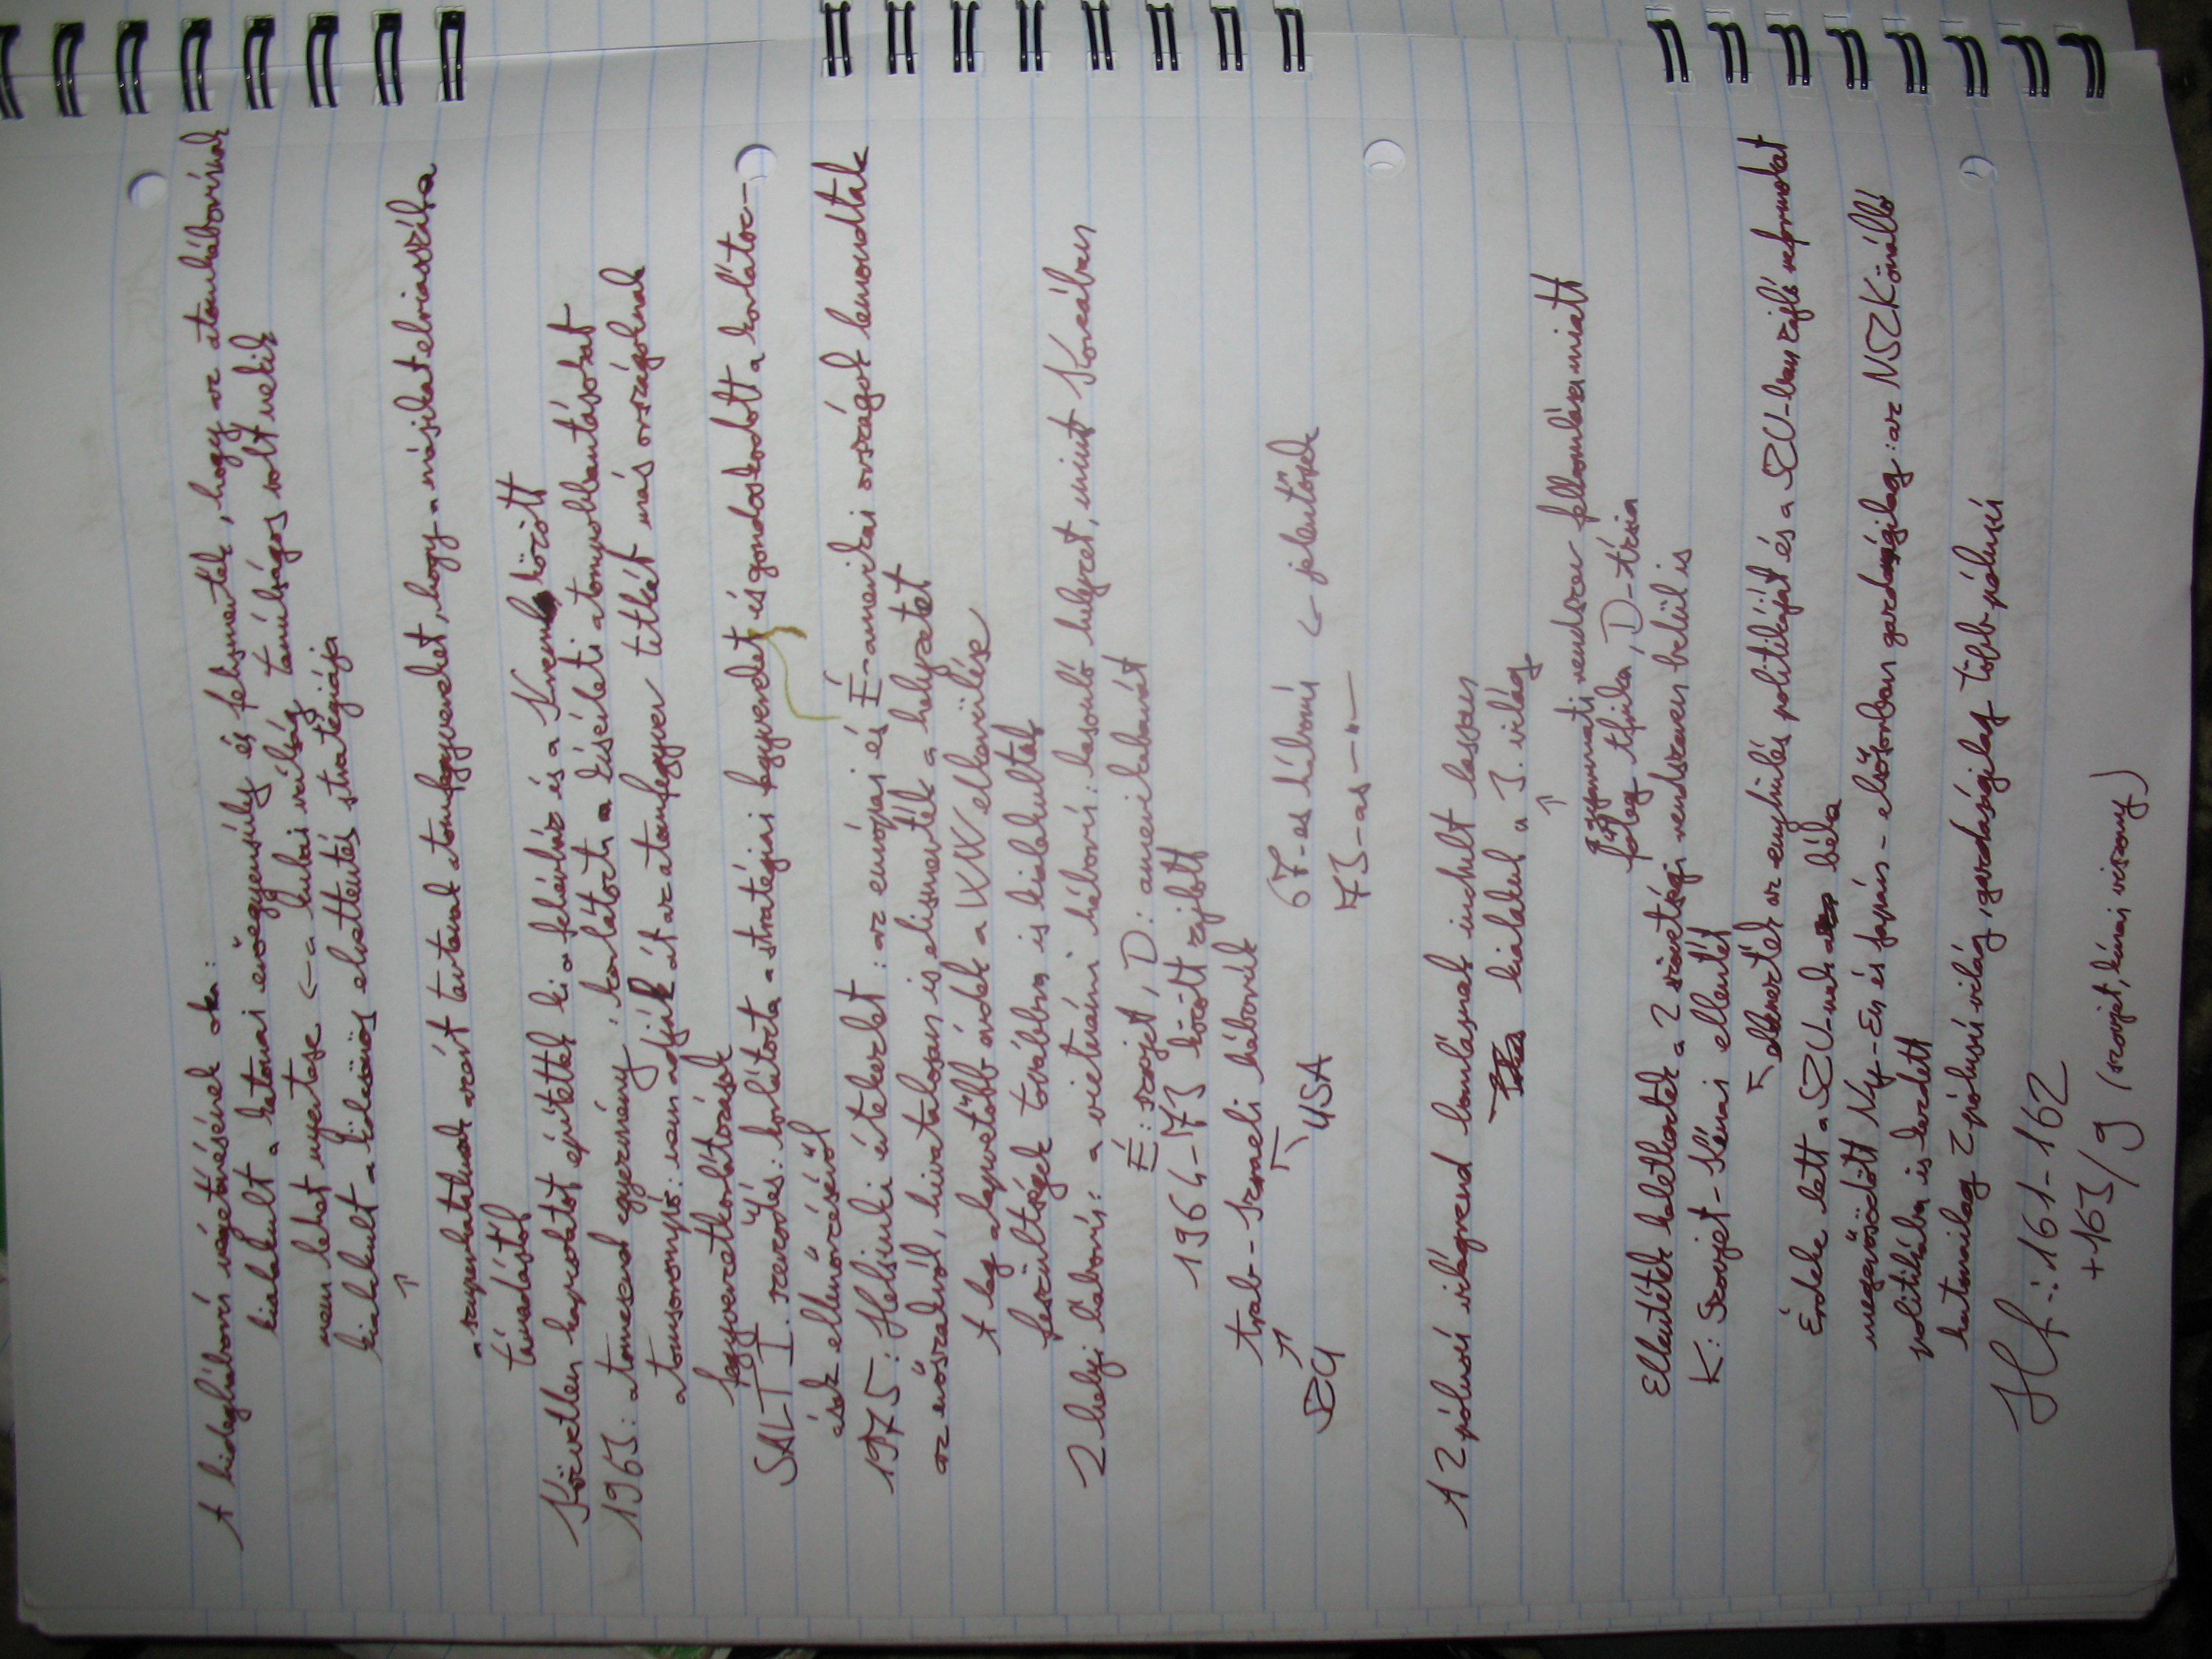 A hidegháború végetérésének oka:
kialakult a katonai erőegyensúly és felismerték, hogy az atomháborúnak
nem lehet nyertese <- a kubai válság tanúlságos volt nekik
kialakult a kölcsönös elrettentés stratégiája
↑
a szuperhatalmak azért tartanak atomfegyvereket, hogy a másikat elriasszák a
támadástól
Közvetlen kapcsolatot építettek ki a fehérház és a Kreml között
1963: atomcsend egyezmény: korlátozta a kísérleti atomrobbantásokat
atomsorompó: nem adják át az atomfegyver titkát más országoknak
fegyverzetkorlátozások
SALT I. szerződés: korlátozta a stratégiai fegyvereket és gondoskodott a korlátoz-
ások ellenőrzéséről
1975: Helsinki értekezlet: az európai és É-amerikai országok lemondtak
az erőszakról, hivatalosan is elismerték a helyzetet
A leg alapvetőbb érdek a VVV elkerülése
feszültségek továbbra is kialakultak
2 helyi háború: a vietnámi háború: hasonló helyzet, mint Koreában
É: szovjet, D: amerikabarát
1964-73 között zajlott
Arab-Izraeli háborúk 67-es háború <- jelentősek
↑ ↑ 73-as —"—
SZU USA
A 2 pólusú világrend bomlásnak indult lassan
kialakul a 3. világ
↑
a gyarmati rendszer felbomlása miatt
főleg Afrika, D-Ázsia
Ellentétek keletkeztek a 2 szövetségi rendszeren belül is
K: Szovjet-Kínai ellentét
↑ ellenezték az enyhülés politikáját és a SZU-ban zajló reformokat
Érdeke lett a SZU-nak a béke
megerősödött Ny-Eu és Japán - elsősorban gazdaságilag: az NSZK önálló
politikába is kezdett
katonailag 2 pólusú világ, gazdaságilag több pólusú
Hf.: 161-162
+163/9 (szovjet, kínai viszony)